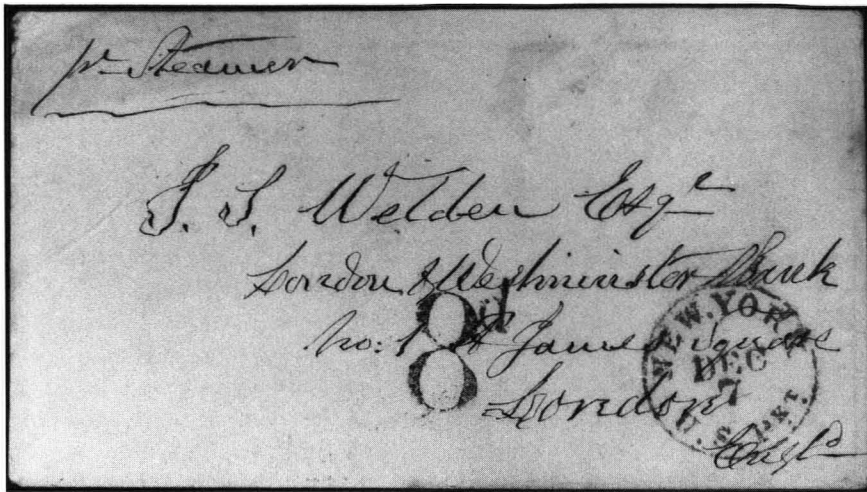 pr Steamer
J. S. Welden Esqr
London & Westminster Bank
No: 1 St James Square
London
Engld
8d
NEW.YORK
DEC
7
U.S. PKT.